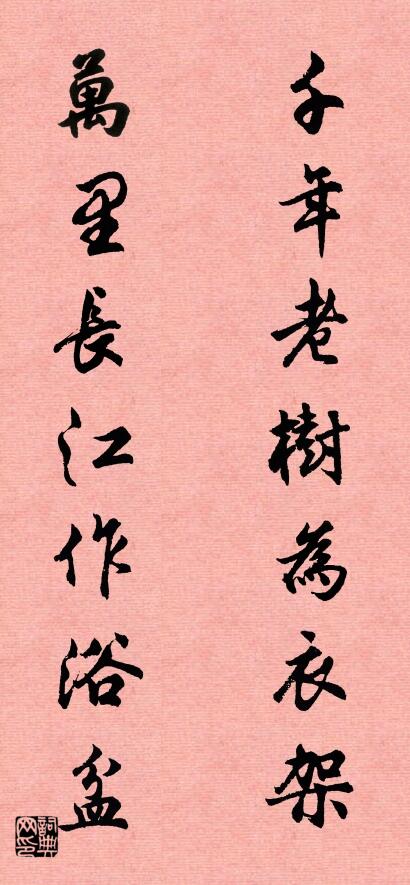 千年老樹為衣架
萬里長江作浴盆
詞典网印